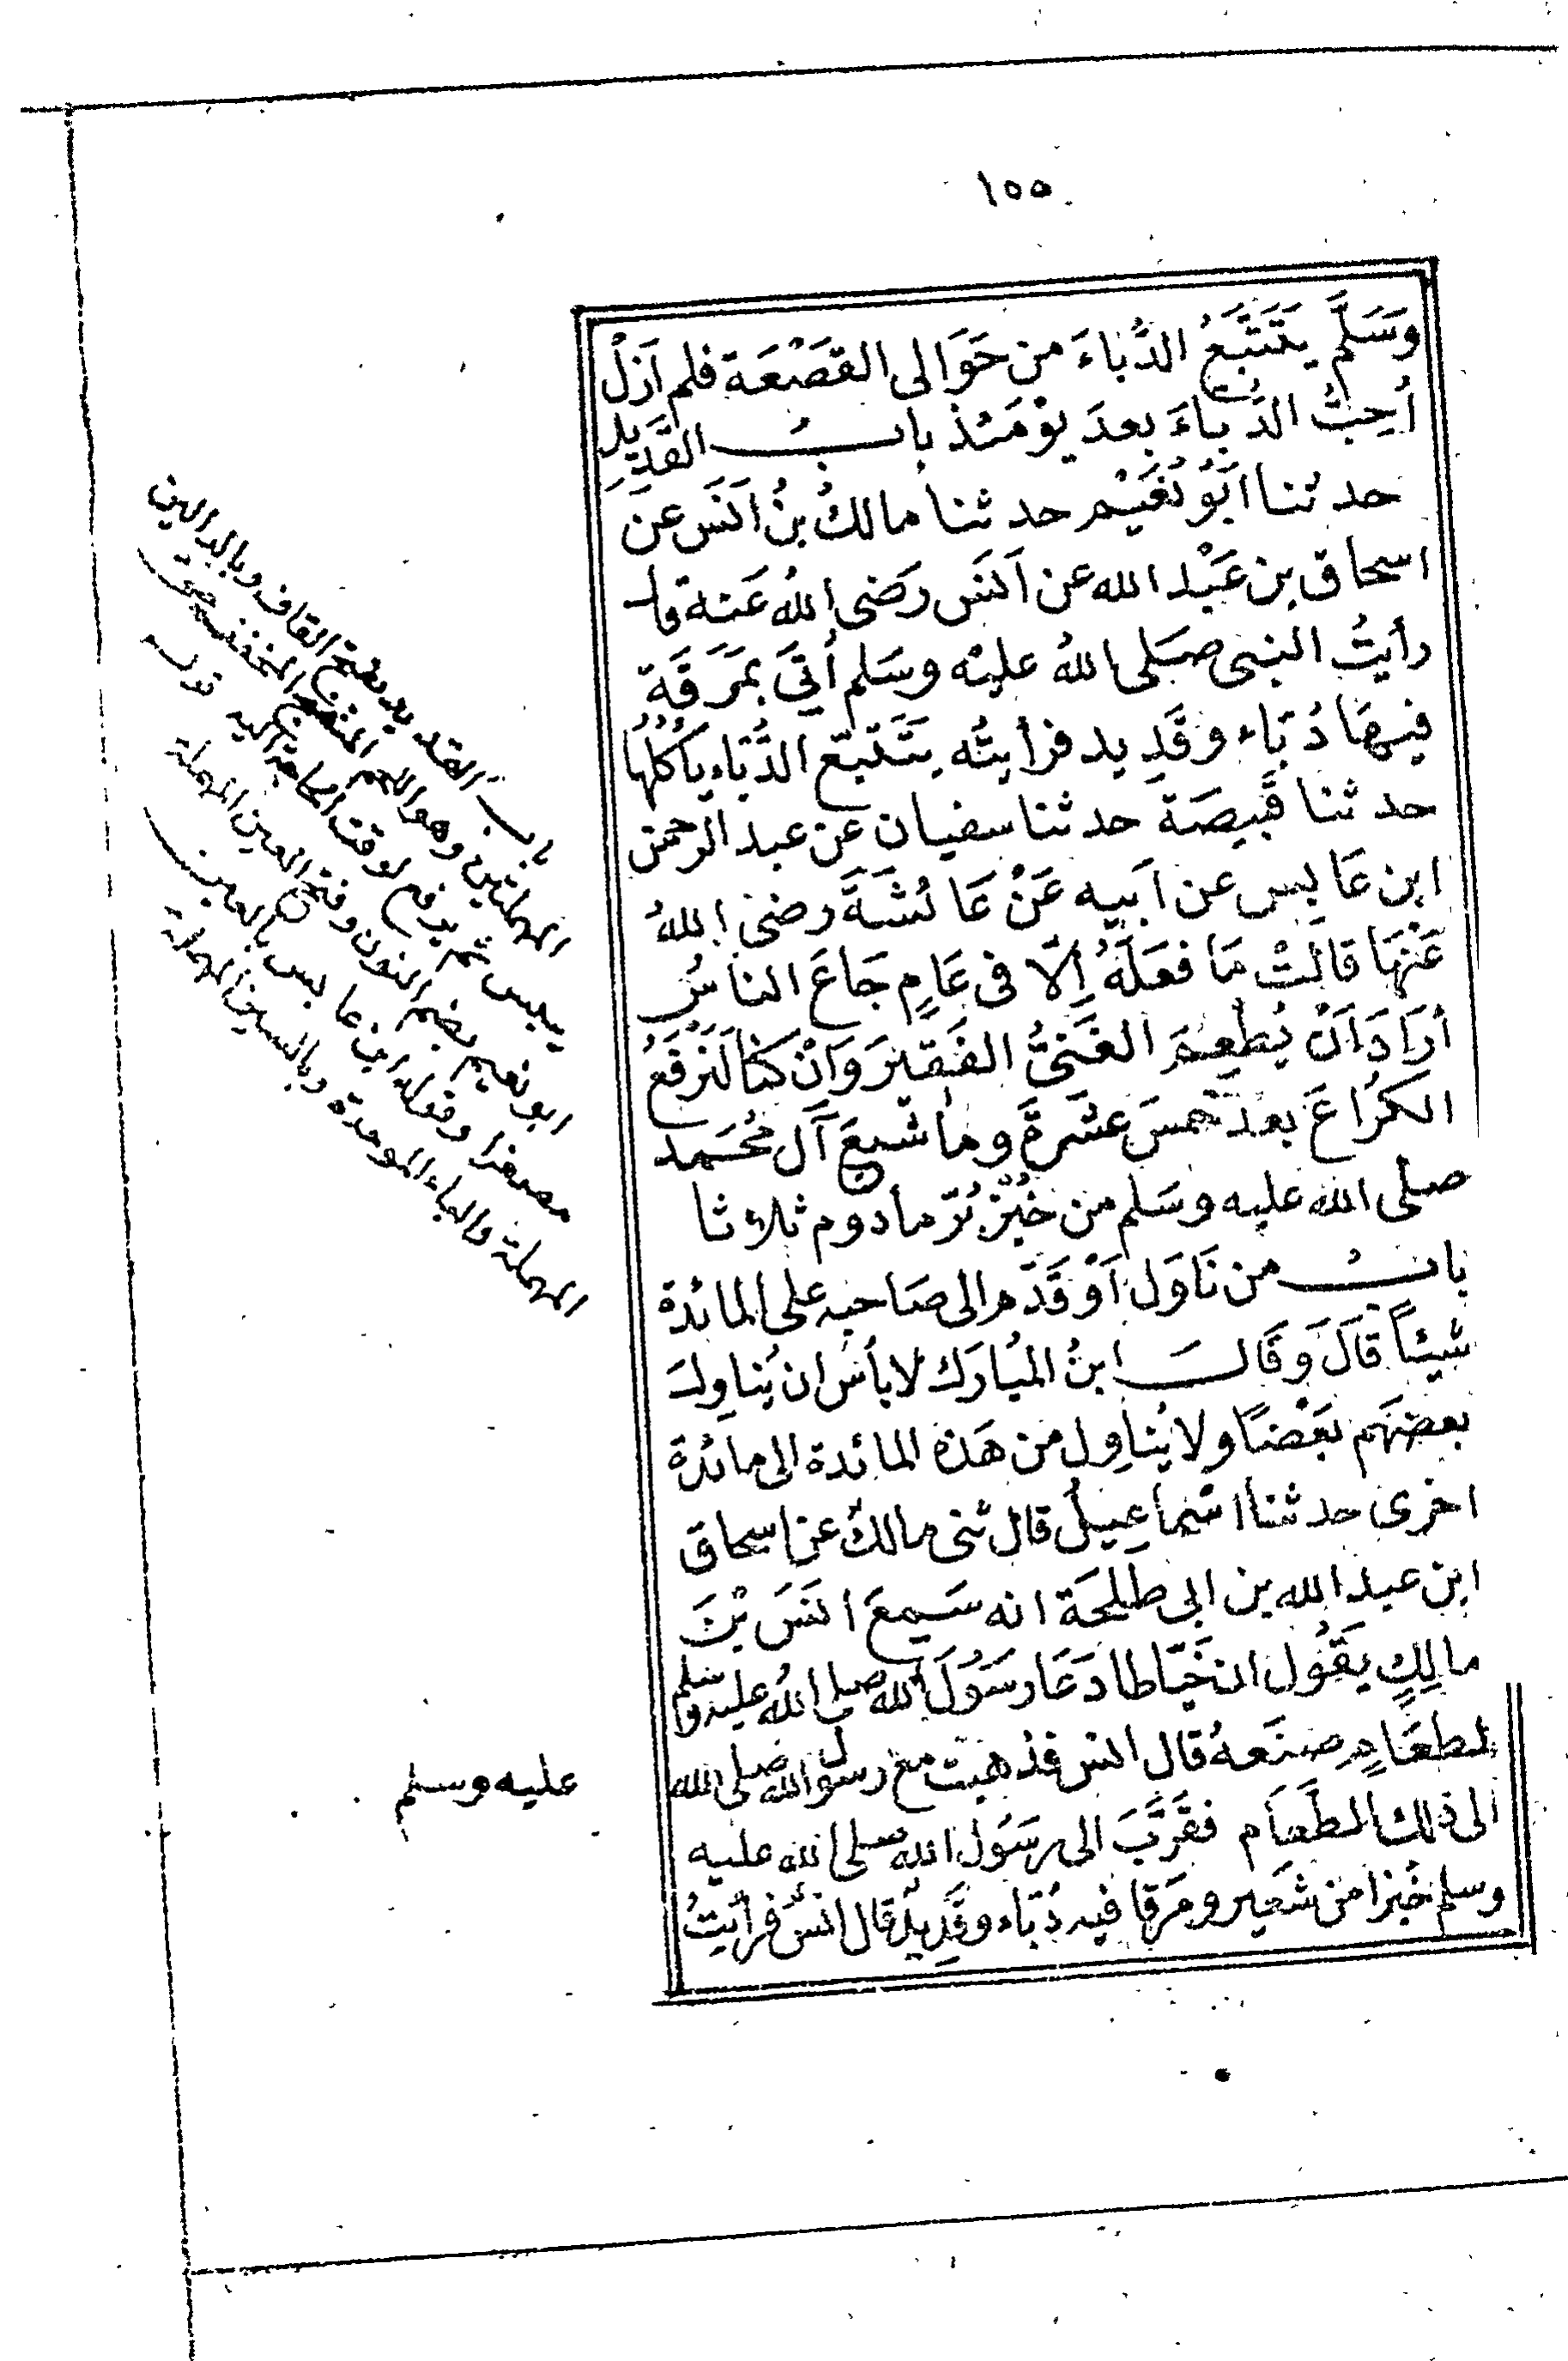 ١٥٥
وَسَلَّم يَتَتَبَّعُ الدُّباءَ من حَوَالى القصْعَة فلم اَزلْ
أُحِبُّ الدُّباءَ بعدَ يوْمَئذ بابُ القَدِيدِ
حدثنا ابُو نُعَيْم حدثنا مالكُ بنُ اَنَسَ عن
اسحاق بن عَبْد الله عن اَنَس رَضى اللهُ عَنه قال
رأيتُ النبى صَلى اللهُ عليْه وسَلم أُتىَ بمَرَقَة
فيهَا دُبَّاء وقَدِيد فرأيتُه يتَتَبّع الدُّبَّاء يأكُلُهَا
حدثنا قَبيصَة حدثنا سفيان عن عبد الرحمن
ابن عَابس عن اَبيه عَنْ عَائشَةَ رضى اللهُ
عَنْهَا قالَتْ مَا فعَلَهُ اِلّا فى عَامٍ جَاعَ الناسُ
أرَادَ اَنْ يُطْعِمَ الغَنىُّ الفَقيرَ وَانْ كنا لَنَرفَعُ
الكُرَاعَ بعدَ خمسَ عشرةَ وما شبعَ آل مُحَمد
صلى الله عليه وسَلم من خُبْز بُرّ مأدوم ثلاثا
بابُ من نَاوَل اَوْ قَدَّم الى صَاحبه على المائدة
شيئاً قالَ وَقَالَ ابنُ المُبارَك لا بأسَ ان يُناوِلَ
بعضهَم بعَضاً ولا يُناوِل من هَذه المائدة الى مائدة
اخرى حدثنا اسْماعِيلُ قال ثنى مالكُ عن اسحاقَ
ابن عبد الله بن ابى طلحَة انه سَمِعَ انَسَ بْنَ
مالِكٍ يَقُول ان خَيّاطا دَعَا رسَوُلَ الله صلى اللهُ عليه وسلم
لطعَامٍ صنَعهُ قال انس فذهبتُ مع رسول الله صلى الله
عليه وسلم
الى ذلك الطَّعاَم فقَرَّبَ الى رسَوُل الله صلى الله عليه
وسلم خُبزا من شَعير ومَرقا فيه دُبّاء وقَدِيدُ قال انسُ فرأيتُ
باب القديد بفتح القاف وبالدالين
المهملتين وهو اللحم المشرح المخفف حتى
ييبس ثم يرفع لوقت الحاجة اليه قوله
ابو نعيم بضم النون وفتح العين المهملة
مصغرا وقوله ابن عابس بالعين
المهملة والباء الموحدة وبالسين المهملة